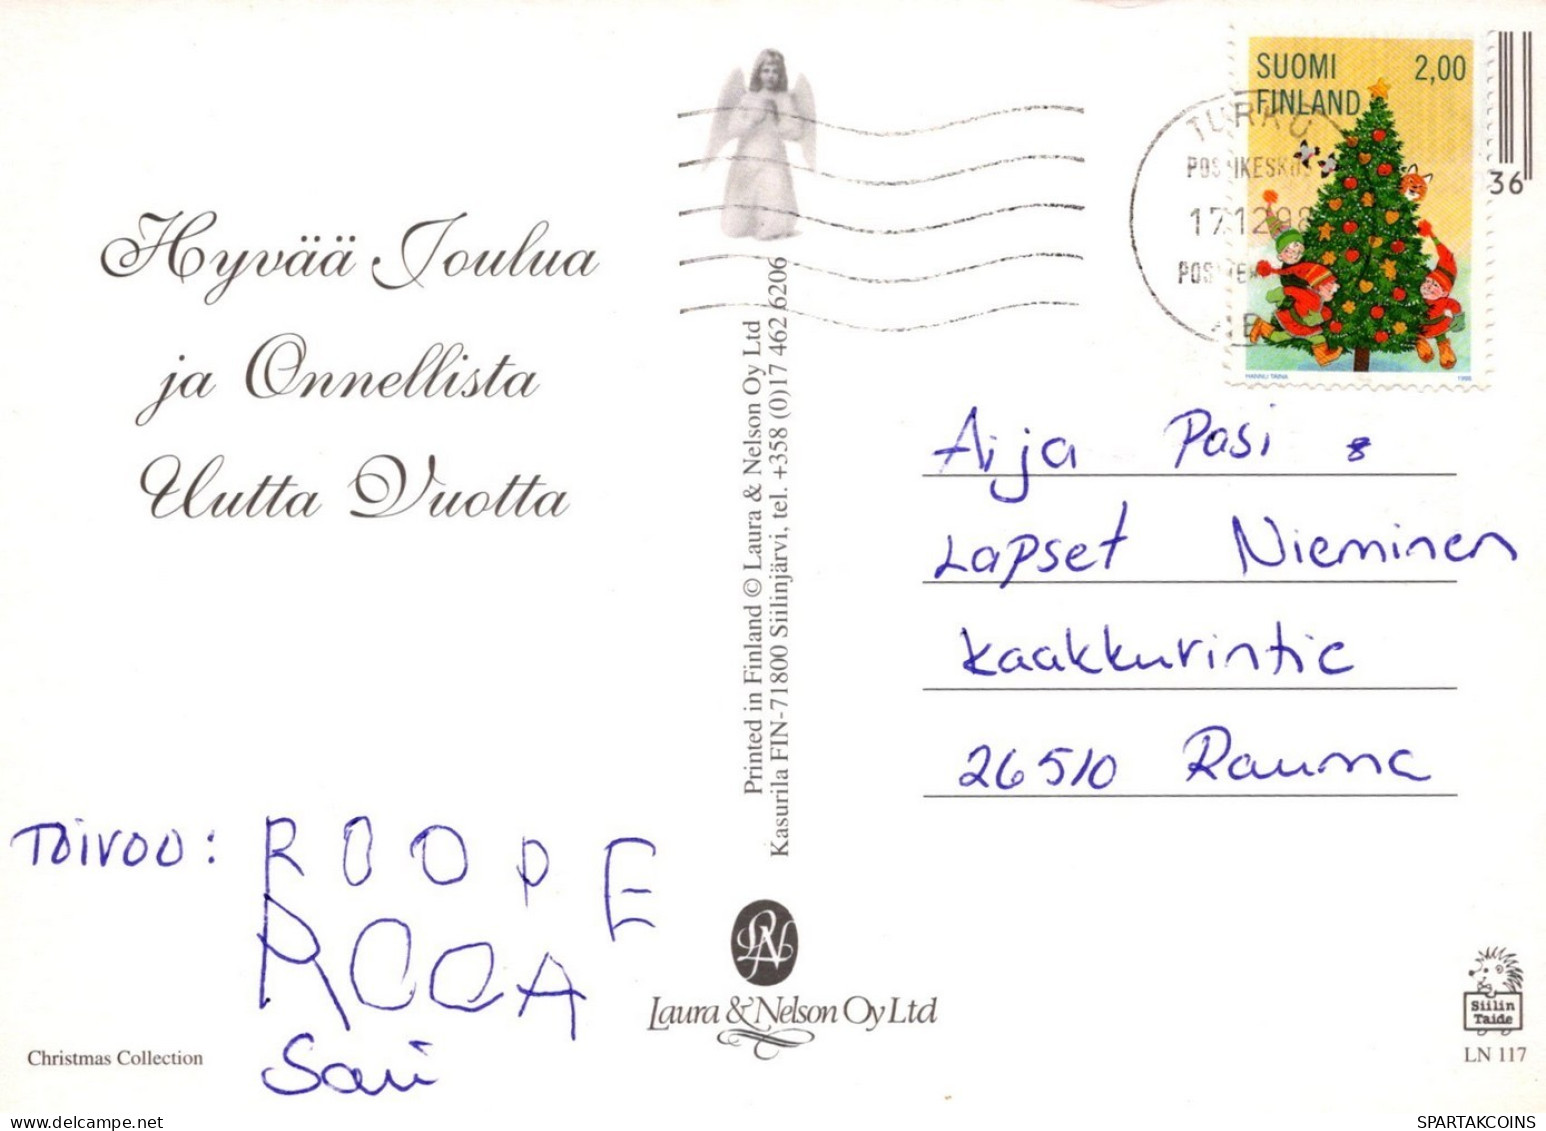 SUOMI 2,00
FINLAND
TURKU
17.12.98
36
HANNU TAINA 1998
Hyvää Joulua
ja Onnellista
Uutta Vuotta
Printed in Finland © Laura & Nelson Oy Ltd
Kasurila FIN-71800 Siilinjärvi, tel. +358 (0)17 462 6206
Aija Pasi &
Lapset Nieminen
Kaakkurintie
26510 Rauma
Toivoo: ROOPE
ROOSA
Sari
LN
Laura & Nelson Oy Ltd
Siilin
Taide
Christmas Collection
LN 117
SPARTAKCOINS